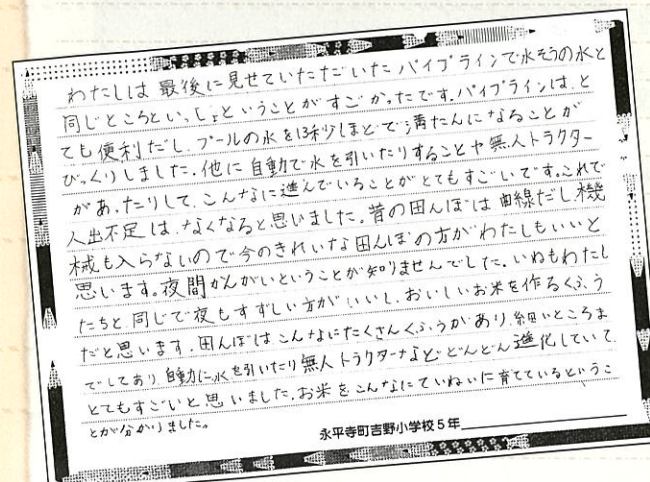 わたしは最後に見せていただいたパイプラインで水そうの水と
同じところといっしょということがすごかったです。パイプラインは、と
ても便利だし、プールの水を13秒ほどで満たんになることが
びっくりしました。他に自動で水を引いたりすることや無人トラクター
があったりして、こんなに進んでいることがとてもすごいです。これで
人出不足は、なくなると思いました。昔の田んぼは曲線だし、機
械も入らないので今のきれいな田んぼの方がわたしもいいと
思います。夜間かんがいということが知りませんでした。いねもわたし
たちと同じで夜もすずしい方がいいし、おいしいお米を作るくふう
だと思います。田んぼはこんなにたくさんくふうがあり、細いところま
でしてあり、自動に水を引いたり無人トラクターなどどんどん進化していて
とてもすごいと思いました。お米をこんなにていねいに育てているというこ
とが分かりました。
永平寺町吉野小学校5年